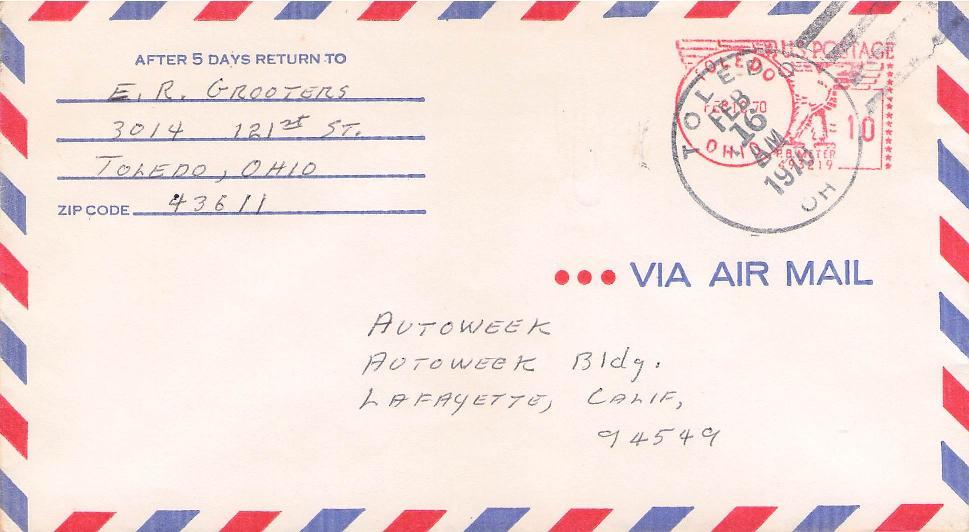 AFTER 5 DAYS RETURN TO
E. R. GROOTERS
3014 121st ST.
TOLEDO, OHIO
ZIP CODE 43611
U.S. POSTAGE
TOLEDO
OHIO
10
P.B. METER
TOLEDO
FEB
16
AM
1970
OH
VIA AIR MAIL
AUTOWEEK
AUTOWEEK Bldg.
LAFAYETTE, CALIF,
94549